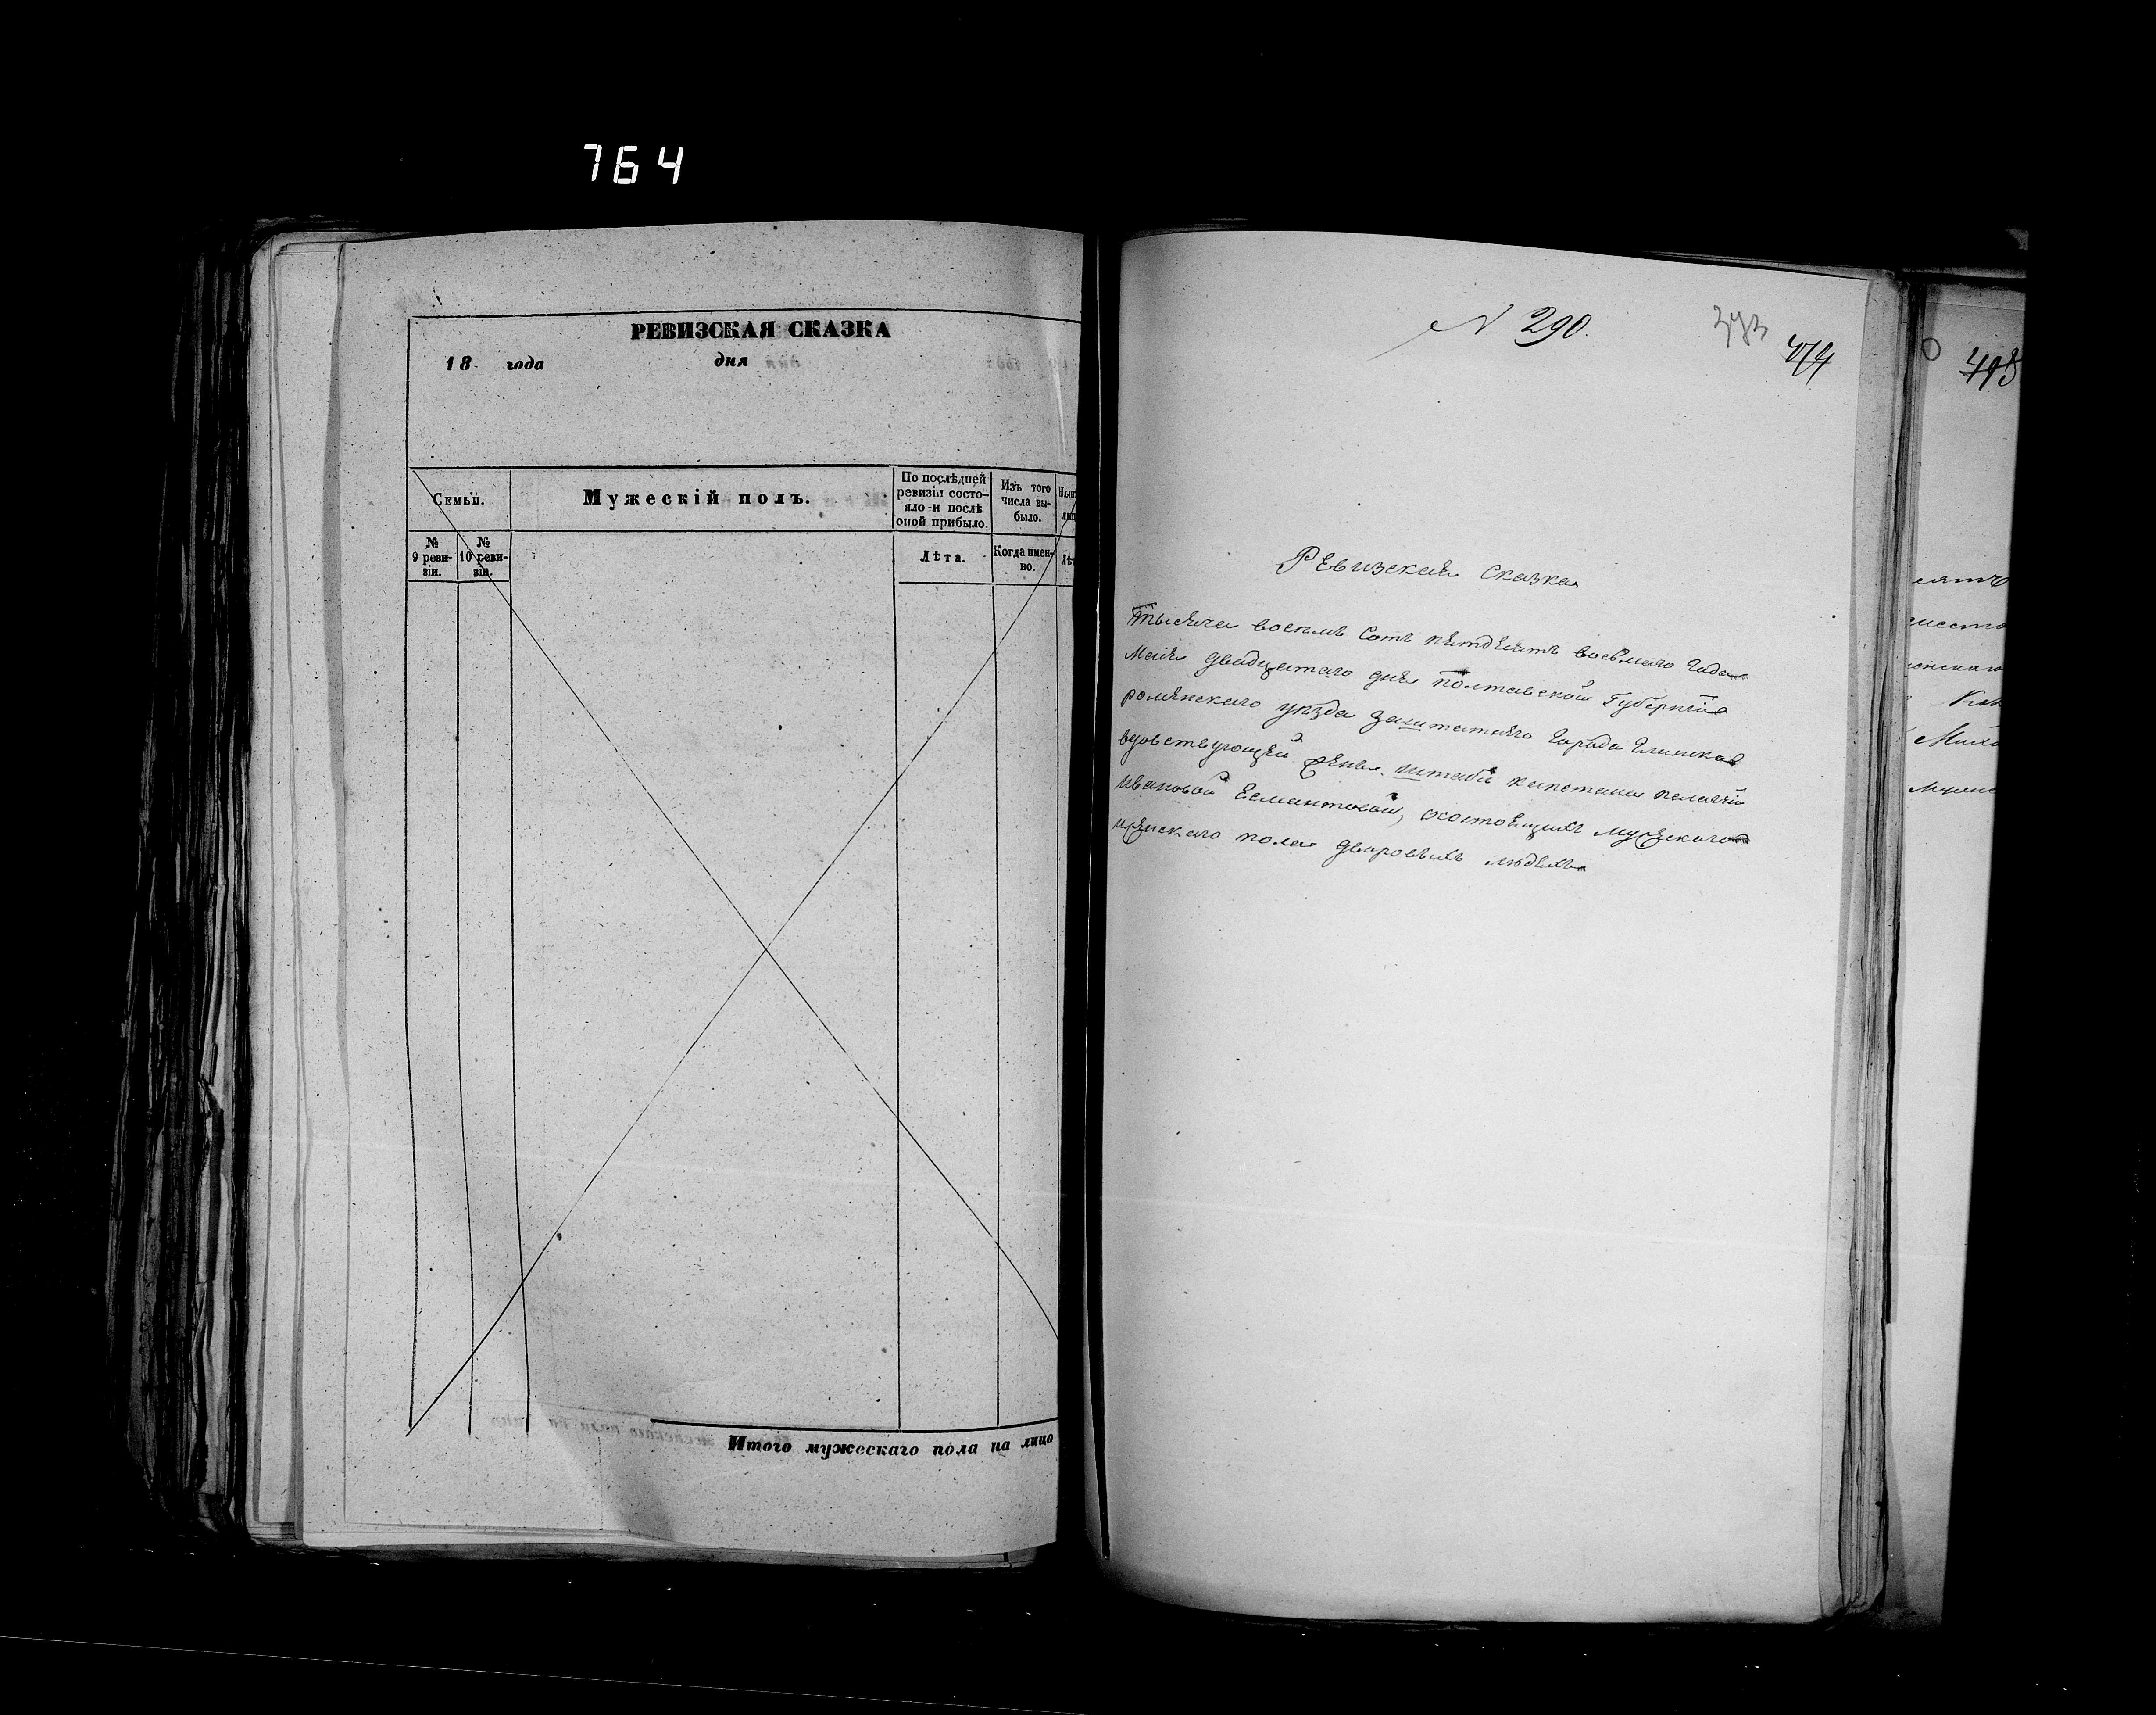 764
РЕВИЗСКАЯ СКАЗКА
18 года дня
Семьи.
Мужескій полъ.
По послѣдней ревизіи состо-
яло и послѣ
оной прибыло.
Изъ того
числа вы-
было.
№
9 реви-
зіи.
№
10 реви-
зіи.
Лѣта.
Когда имен-
но.
Итого мужескаго пола на лицо
N 290.
474
Ревизская Сказка
Тысяча восемь Сотъ пятдесятъ восьмаго Года
Мая двадцатаго дня Полтавской Губерніи
роменского уѣзда заштатнаго Города Глинска
вдовствующей жены штабсъ капетана пелагѣи
Ивановой Есмантовой, о состоящихъ мужеского
и женского пола дворовыхъ людяхъ